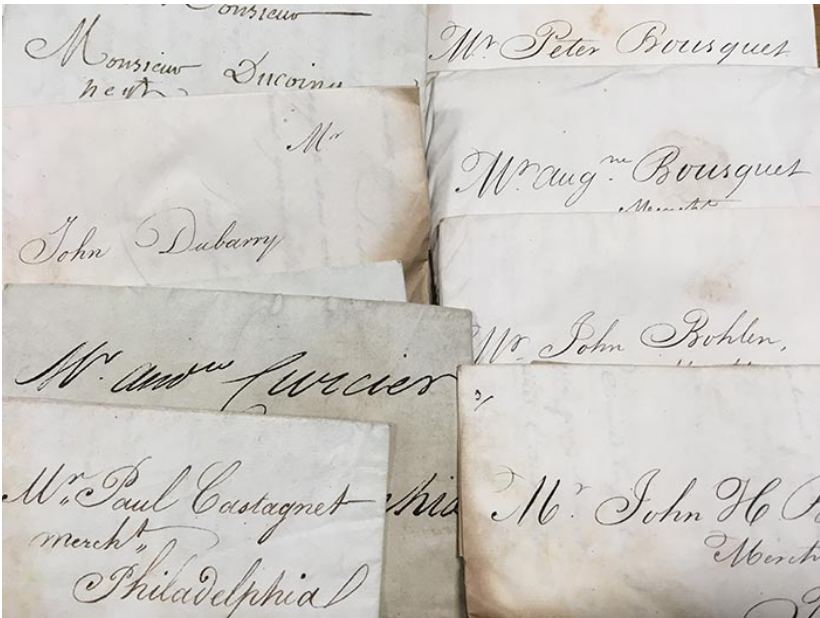 Monsieur
Monsieur Ducoing
negt
Mr
John Dubarry
Mr. andw Curcier
Mr. Paul Castagnet
mercht
Philadelphia
Mr Peter Bousquet
Mr. augne Bousquet
Merchant
Mr John Bohlen,
Mr. John H
Merch